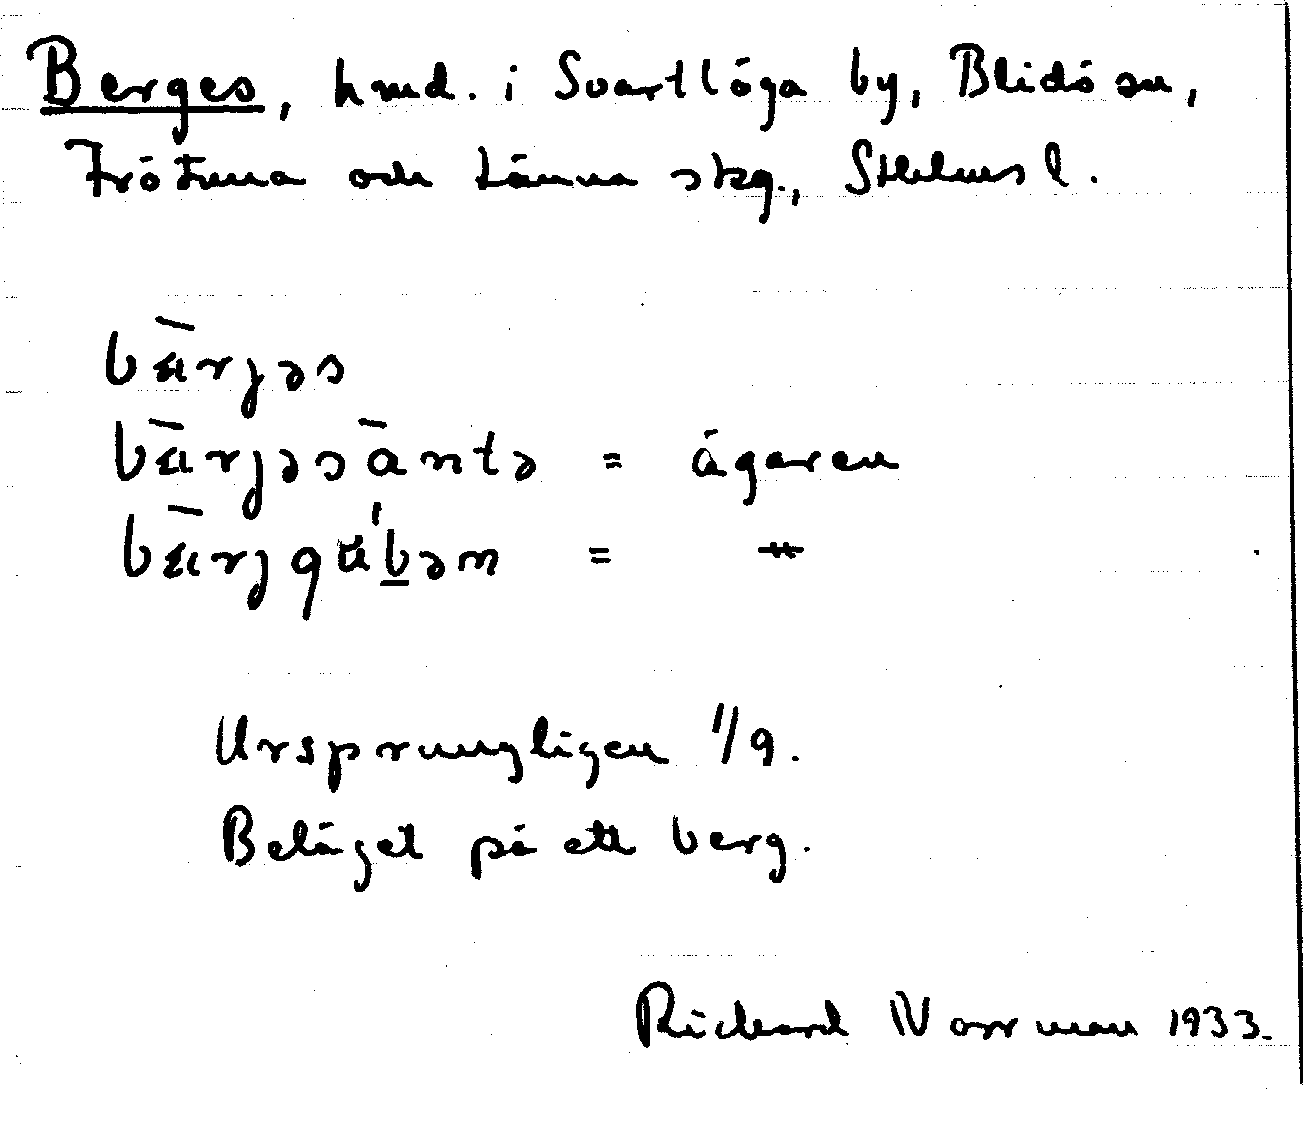 Berges, hmd. i Svartlöga by, Blidö sn,
Frötuna och Länna skg., Sthlms l.
bä̀rjəs
bä̀rjəsàntə = ägaren
bä̀rjgúbən = –"–
Ursprungligen 1/9.
Beläget på ett berg.
Rickard Norrman 1933.